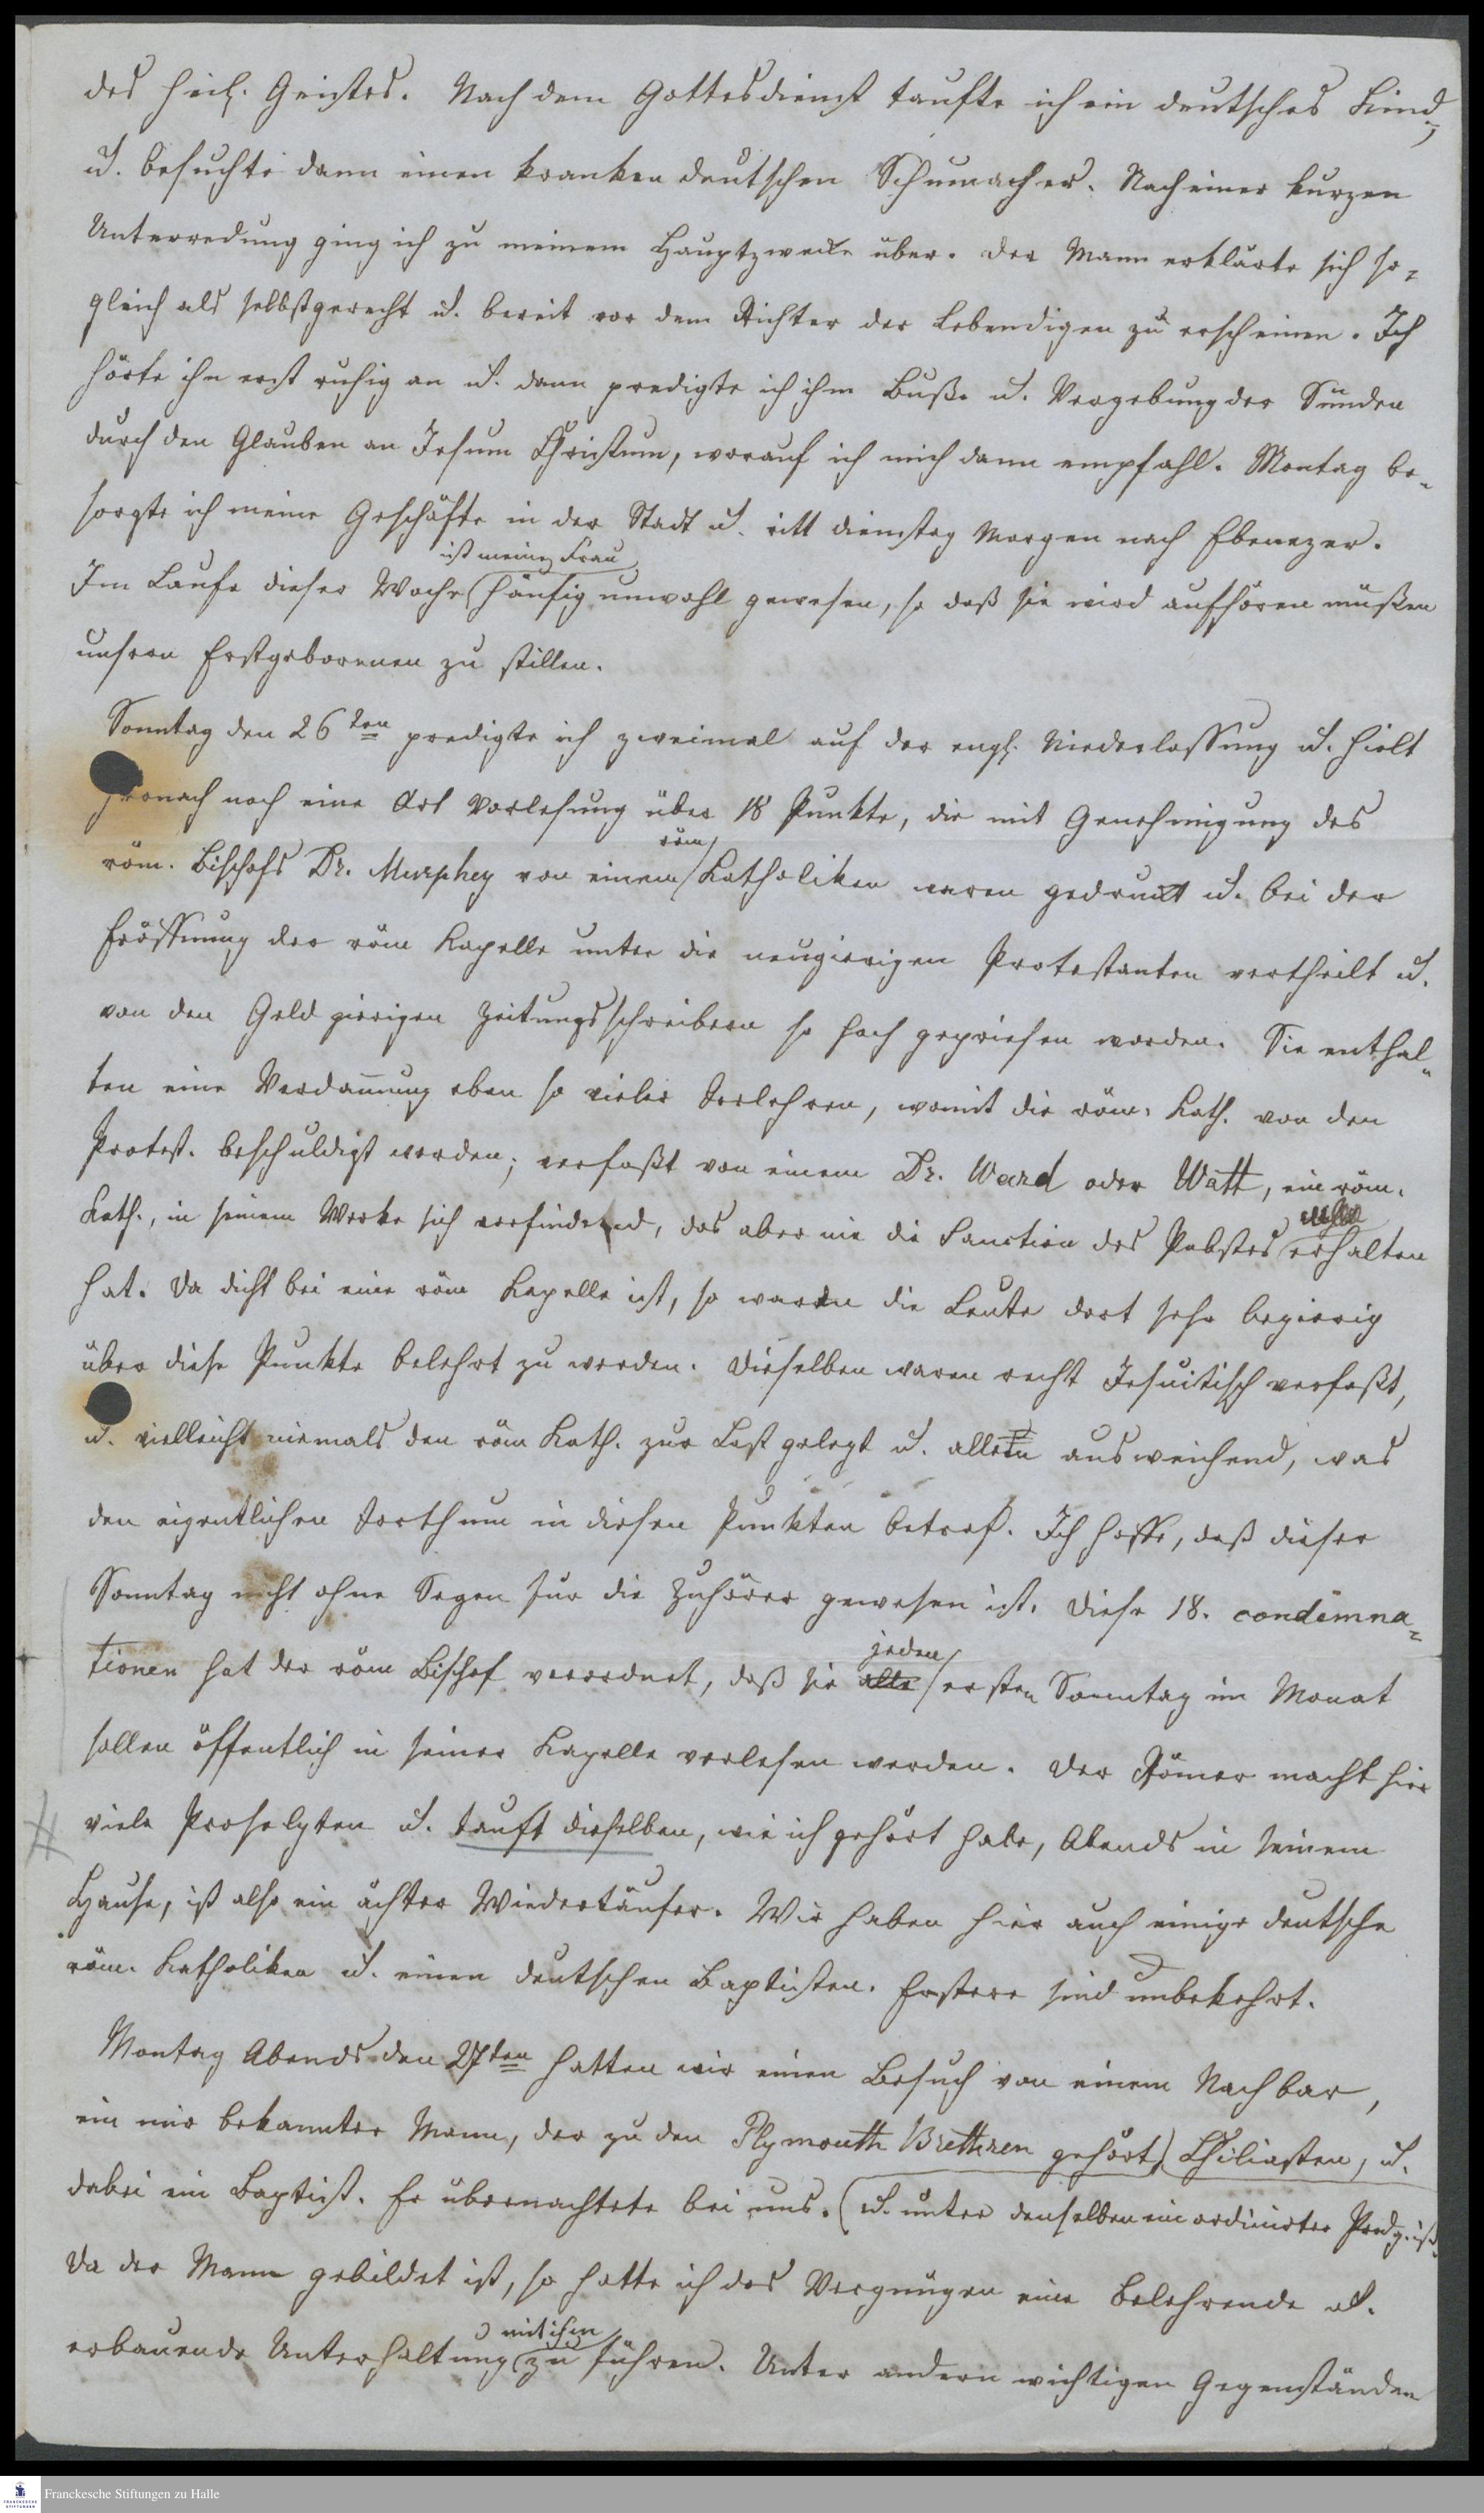 des heil. Geistes. Nach dem Gottesdienst taufte ich ein deutsches Kind,
u. besuchte dann einen kranken deutschen Schumacher. Nach einer kurzen
Unterredung ging ich zu meinem Hauptzwecke über. Der Mann erklärte sich so-
gleich als selbstgerecht u. bereit vor dem Richter der Lebendigen zu erscheinen. Ich
hörte ihn erst ruhig an u. dann predigte ich ihm Buße u. Vergebung der Sünden
durch den Glauben an Jesum Christum, worauf ich mich dann empfahl. Montag be-
sorgte ich meine Geschäfte in der Stadt u. ritt Dienstag Morgen nach Ebenezer.
ist meine Frau
Im Laufe dieser Woche häufig unwohl gewesen, so daß sie wird aufhören müßen
unsern Erstgeborenen zu stillen.
Sonntag den 26ten predigte ich zweimal auf der engl. Niederlassung u. hielt
hernach noch eine Art Vorlesung über 18 Punkte, die mit Genehmigung des
röm
röm. Bischofs Dr. Murphey von einem Katholiken waren gedruckt u. bei der
Eröffnung der röm Kapelle unter die neugierigen Protestanten vertheilt u.
von den Geld gierigen Zeitungsschreibern so hoch gepriesen worden. Sie enthal-
ten eine Verdam̅ung eben so vieler Irrlehren, womit die röm. Kath. von den
Protest. beschuldigt werden; verfaßt von einem Dr. Ward oder Watt, ein röm.
Kath., in seinem Werke sich verfindend, das aber nie die Sanction des Pabstes erhalten
hat. Da dicht bei eine röm Kapelle ist, so waren die Leute dort sehr begierig
über diese Punkte belehrt zu werden. Dieselben waren recht Jesuitisch verfaßt,
u. vielleicht niemals den röm Kath. zur Last gelegt u. allem ausweichend, was
den eigentlichen Irrthum in diesen Punkten betraf. Ich hoffe, daß dieser
Sonntag nicht ohne Segen für die Zuhörer gewesen ist. Diese 18. condemna-
jeden
tionen hat der röm Bischof verordnet, daß sie alle ersten Sonntag im Monat
sollen öffentlich in seiner Kapelle verlesen werden. Der Römer macht hier
viele Proselyten u. tauft dieselben, wie ich gehört habe, Abends in seinem
Hause, ist also ein ächter Wiedertäufer. Wir haben hier auch einige deutsche
röm. Katholiken u. einen deutschen Baptisten. Erstere sind unbekehrt.
Montag Abends den 27ten hatten wir einen Besuch von einem Nachbar,
ein mir bekannter Mann, der zu den Plymouth Brethren gehört, Chiliasten, u.
dabei ein Baptist. Er übernachtete bei uns. (u. unter denselben ein ordinirter Predg. ist.
Da der Mann gebildet ist, so hatte ich das Vergnügen eine belehrende u.
mit ihm
erbauende Unterhaltung zu führen. Unter andern wichtigen Gegenständen
Franckesche Stiftungen zu Halle